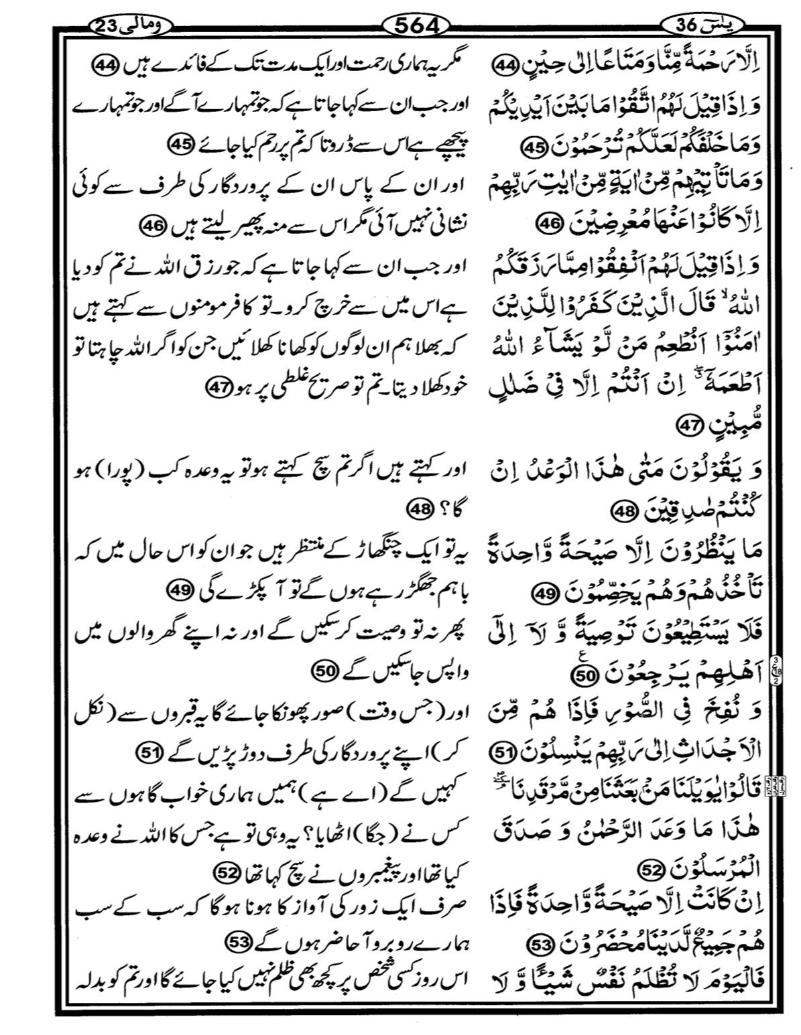 یٰسٓ 36
564
ومالی 23
اِلَّا رَحْمَةً مِّنَّا وَمَتَاعًا اِلٰى حِيْنٍ 44
وَاِذَا قِيْلَ لَهُمُ اتَّقُوْا مَا بَيْنَ اَيْدِيْكُمْ
وَمَا خَلْفَكُمْ لَعَلَّكُمْ تُرْحَمُوْنَ 45
وَمَا تَاْتِيْهِمْ مِّنْ اٰيَةٍ مِّنْ اٰيٰتِ رَبِّهِمْ
اِلَّا كَانُوْا عَنْهَا مُعْرِضِيْنَ 46
وَاِذَا قِيْلَ لَهُمْ اَنْفِقُوْا مِمَّا رَزَقَكُمُ
اللّٰهُ ۙ قَالَ الَّذِيْنَ كَفَرُوْا لِلَّذِيْنَ
اٰمَنُوْٓا اَنُطْعِمُ مَنْ لَّوْ يَشَآءُ اللّٰهُ
اَطْعَمَهٗٓ ۖ اِنْ اَنْتُمْ اِلَّا فِيْ ضَلٰلٍ
مُّبِيْنٍ 47
وَ يَقُوْلُوْنَ مَتٰى هٰذَا الْوَعْدُ اِنْ
كُنْتُمْ صٰدِقِيْنَ 48
مَا يَنْظُرُوْنَ اِلَّا صَيْحَةً وَّاحِدَةً
تَاْخُذُهُمْ وَهُمْ يَخِصِّمُوْنَ 49
فَلَا يَسْتَطِيْعُوْنَ تَوْصِيَةً وَّ لَآ اِلٰٓى
اَهْلِهِمْ يَرْجِعُوْنَ 50
وَ نُفِخَ فِى الصُّوْرِ فَاِذَا هُمْ مِّنَ
الْاَجْدَاثِ اِلٰى رَبِّهِمْ يَنْسِلُوْنَ 51
قَالُوْا يٰوَيْلَنَا مَنْۢ بَعَثَنَا مِنْ مَّرْقَدِنَا
هٰذَا مَا وَعَدَ الرَّحْمٰنُ وَ صَدَقَ
الْمُرْسَلُوْنَ 52
اِنْ كَانَتْ اِلَّا صَيْحَةً وَّاحِدَةً فَاِذَا
هُمْ جَمِيْعٌ لَّدَيْنَا مُحْضَرُوْنَ 53
فَالْيَوْمَ لَا تُظْلَمُ نَفْسٌ شَيْـًٔا وَّ لَا
مگر یہ ہماری رحمت اور ایک مدت تک کے فائدے ہیں 44
اور جب ان سے کہا جاتا ہے کہ جو تمہارے آگے اور جو تمہارے
پیچھے ہے اس سے ڈرو تا کہ تم پر رحم کیا جائے 45
اور ان کے پاس ان کے پروردگار کی طرف سے کوئی
نشانی نہیں آئی مگر اس سے منہ پھیر لیتے ہیں 46
اور جب ان سے کہا جاتا ہے کہ جو رزق اللہ نے تم کو دیا
ہے اس میں سے خرچ کرو۔ تو کافر مومنوں سے کہتے ہیں
کہ بھلا ہم ان لوگوں کو کھانا کھلائیں جن کو اگر اللہ چاہتا تو
خود کھلا دیتا۔ تم تو صریح غلطی پر ہو 47
اور کہتے ہیں اگر تم سچ کہتے ہو تو یہ وعدہ کب (پورا) ہو
گا؟ 48
یہ تو ایک چنگھاڑ کے منتظر ہیں جو ان کو اس حال میں کہ
باہم جھگڑ رہے ہوں گے تو آ پکڑے گی 49
پھر نہ تو وصیت کر سکیں گے اور نہ اپنے گھر والوں میں
واپس جا سکیں گے 50
اور (جس وقت) صور پھونکا جائے گا یہ قبروں سے (نکل
کر) اپنے پروردگار کی طرف دوڑ پڑیں گے 51
کہیں گے (اے ہے) ہمیں ہماری خواب گاہوں سے
کس نے (جگا) اٹھایا؟ یہ وہی تو ہے جس کا اللہ نے وعدہ
کیا تھا اور پیغمبروں نے سچ کہا تھا 52
صرف ایک زور کی آواز کا ہونا ہو گا کہ سب کے سب
ہمارے روبرو آ حاضر ہوں گے 53
اس روز کسی شخص پر کچھ بھی ظلم نہیں کیا جائے گا اور تم کو بدلہ